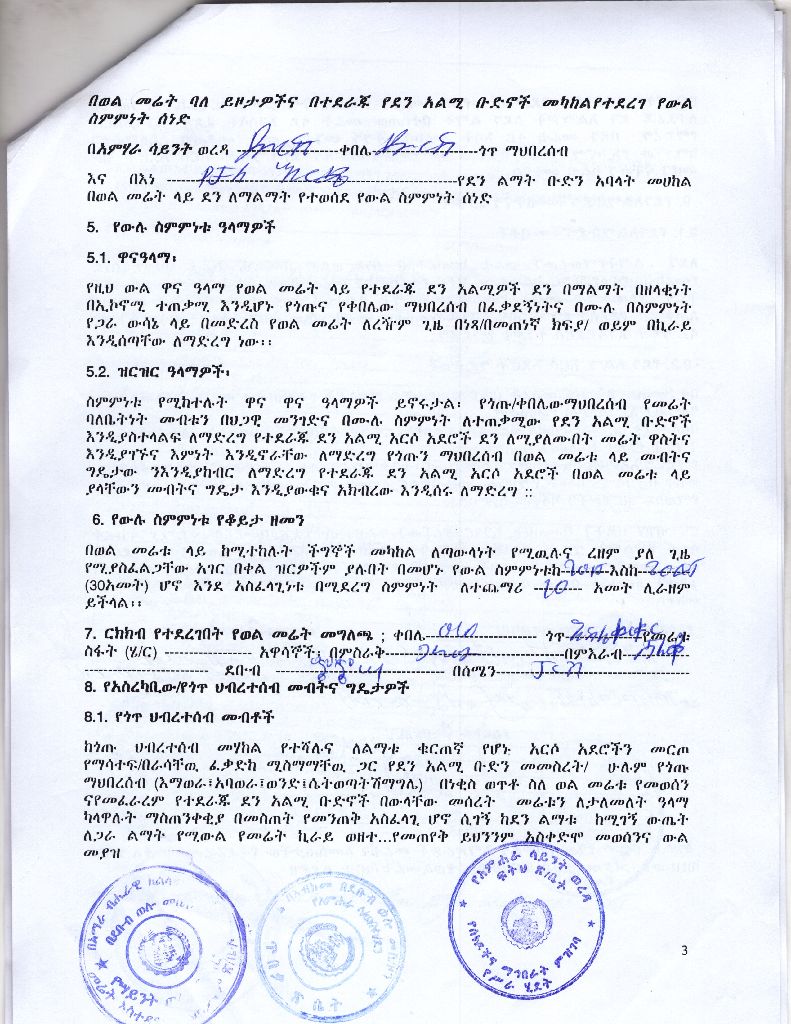 በወል መሬት ባለ ይዞታዎችና በተደራጁ የደን አልሚ ቡድኖች መካከልየተደረገ የውል
ስምምነት ሰነድ
በአምሃራ ሳይንት ወረዳ ---------------------ቀበሌ---------------------ጎጥ ማህበረሰብ
እና በእነ ----------------------------------------------------------የደን ልማት ቡድን አባላት መሀከል
በወል መሬት ላይ ደን ለማልማት የተወሰደ የውል ስምምነት ሰነድ
5. የውሉ ስምምነቱ ዓላማዎች
5.1. ዋናዓላማ፡
የዚህ ውል ዋና ዓላማ የወል መሬት ላይ የተደራጁ ደን አልሚዎች ደን በማልማት በዘላቂነት
በኢኮኖሚ ተጠቃሚ እንዲሆኑ የጎጡና የቀበሌው ማህበረሰብ በፈቃደኝነትና በሙሉ በስምምነት
የጋራ ውሳኔ ላይ በመድረስ የወል መሬት ለረዥም ጊዜ በነጻ/በመጠነኛ ክፍያ/ ወይም በኪራይ
እንዲሰጣቸው ለማድረግ ነው፡፡
5.2. ዝርዝር ዓላማዎች፡
ስምምነቱ የሚከተሉት ዋና ዋና ዓላማዎች ይኖሩታል፡ የጎጡ/ቀበሌውማህበረሰብ የመሬት
ባለቤትነት መብቱን በህጋዊ መንገድና በሙሉ ስምምነት ለተጠቃሚው የደን አልሚ ቡድኖች
እንዲያስተላልፍ ለማድረግ የተደራጁ ደን አልሚ አርሶ አደሮች ደን ለሚያለሙበት መሬት ዋስትና
እንዲያገኙና እምነት እንዲኖራቸው ለማድረግ የጎጡን ማህበረሰብ በወል መሬቱ ላይ መብትና
ግዴታው ንእንዲያከብር ለማድረግ የተደራጁ ደን አልሚ አርሶ አደሮች በወል መሬቱ ላይ
ያላቸውን መብትና ግዴታ እንዲያውቁና አክብረው እንዲሰሩ ለማድረግ ::
6. የውሉ ስምምነቱ የቆይታ ዘመን
በወል መሬቱ ላይ ከሚተከሉት ችግኞች መካከል ለጣውላነት የሚዉሉና ረዘም ያለ ጊዜ
የሚያስፈልጋቸው አገር በቀል ዝርዎችም ያሉበት በመሆኑ የውል ስምምነቱከ---------እስከ---------
(30አመት) ሆኖ እንደ አስፈላጊነቱ በሚደረግ ስምምነት ለተጨማሪ --10---- አመት ሊራዘም
ይችላል፡፡
7. ርክክብ የተደረገበት የወል መሬት መግለጫ ; ቀበሌ-------------------- ጎጥ-------------/የመሬቱ
ስፋት (ሄ/ር) ----------------- አዋሳኞች፡ በምስራቅ-----------------------------በምእራብ-------------
------------------------ ደቡብ --------------------------------- በሰሜን--------------------------------
8. የአስረካቢው/የጎጥ ህብረተሰብ መብትና ግዴታዎች
8.1. የጎጥ ህብረተሰብ መብቶች
ከጎጡ ህብረተሰብ መሃከል የተሻሉና ለልማቱ ቁርጠኛ የሆኑ አርሶ አደሮችን መርጦ
የማሳተፍ/በራሳቸዉ ፈቃድከ ሚስማማቸዉ ጋር የደን አልሚ ቡድን መመስረት/ ሁሉም የጎጡ
ማህበረሰብ (እማወራ፤አባወራ፤ወንድ፤ሴትወጣትሽማግሌ) በነቂስ ወጥቶ ስለ ወል መሬቱ የመወሰን
ናየመፈራረም የተደራጁ ደን አልሚ ቡድኖች በውላቸው መሰረት መሬቱን ለታለመለት ዓላማ
ካላዋሉት ማስጠንቀቂያ በመስጠት የመንጠቅ አስፈላጊ ሆኖ ሲገኝ ከደን ልማቱ ከሚገኝ ውጤት
ለጋራ ልማት የሚውል የመሬት ኪራይ ወዘተ...የመጠየቅ ይህንንም አስቀድሞ መወሰንና ውል
መያዝ
የአምሐራ ሳይንት ወረዳ
ፍትህ ጽ/ቤት
የሰነዶችና ማኅበራት ምዝገባ
የሥራ ሂደት
3